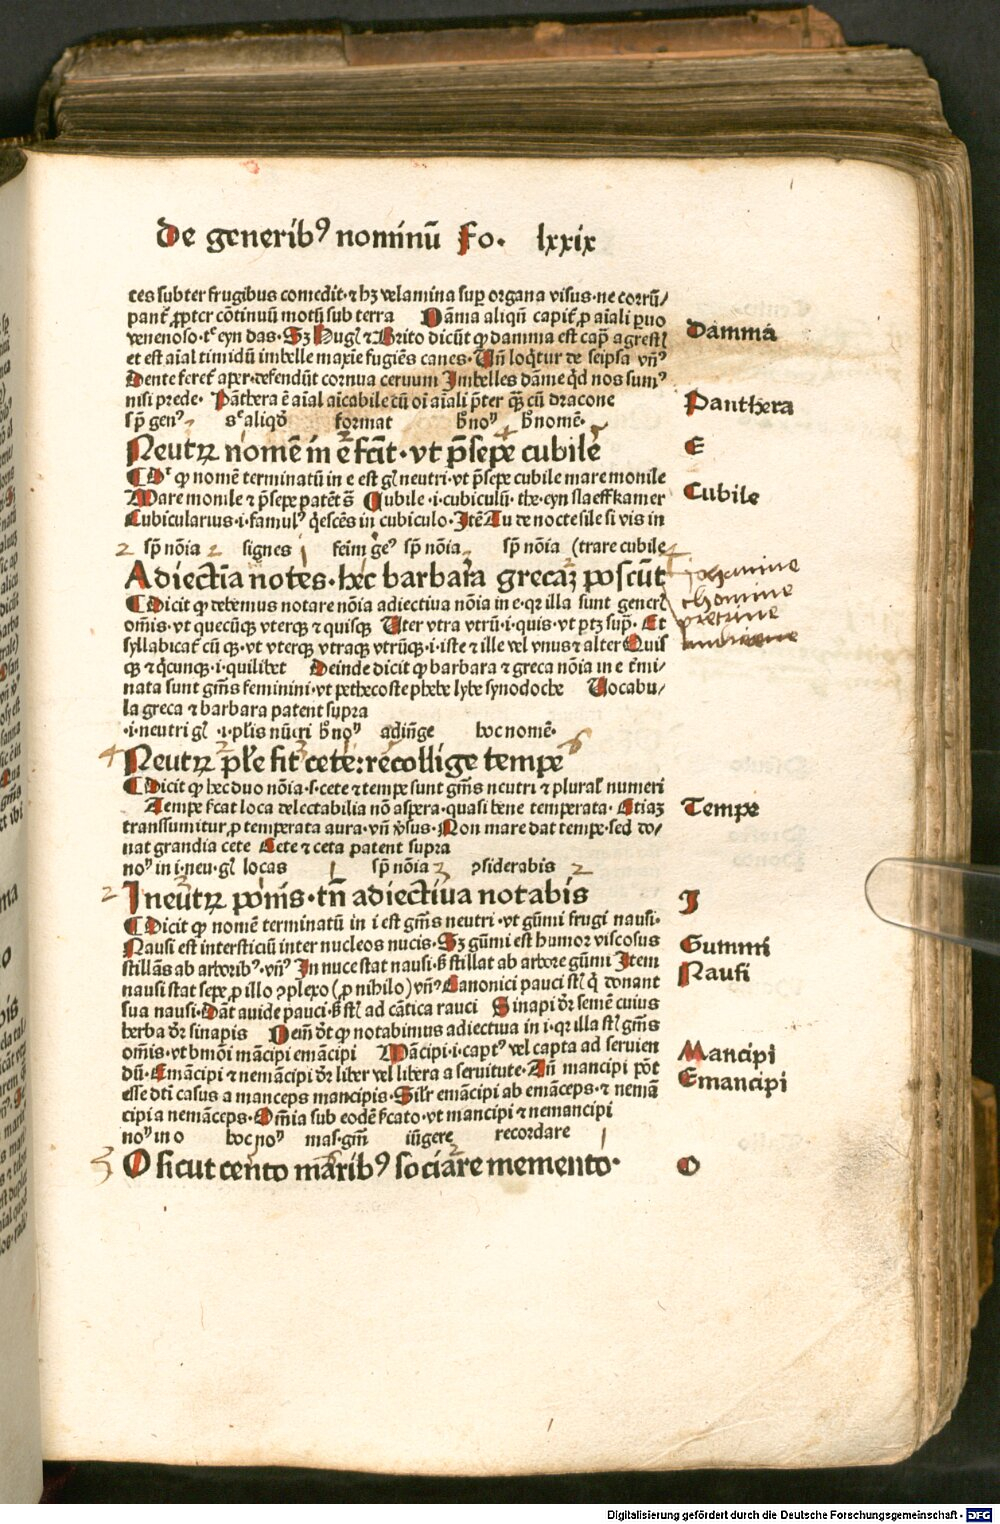 De generibꝰ nominū Fo. lxxix
ces subter frugibus comedit· ⁊ hꝫ velamina suꝑ organa visus· ne corrū/
panť ꝓpter cōtinuū motū sub terra Dāma aliqn̄ capiť ꝓ aīali ꝑuo
venenoso· tˢ eyn das· Sꝫ Hugᷣ ⁊ Brito dicūt ꝙ damma est cap̄a agrestᷣ
et est aīal timidū imbelle maxīe fugiēs canes· Un̄ loq̄tur de seipsa vn̄ꝰ
Dente fereť aper· defendūt cornua ceruum Imbelles dāme qͥd nos sumꝰ
nisi prede· Pāthera ē aīal aīcabile cū oī aīali p̄ter qꝫ cū dracone
Damma
Panthera
sp̄ genꝰ sˢ aliqd̄ format hˀ noᷣ hˀ nomē·
Neutrꝝ nomē in e fc̄it· vt p̄sepe cubile
E
¶ Dˢ ꝙ nomē terminatū in e est gᷣ neutri· vt p̄sepe cubile mare monile
Mare monile ⁊ p̄sepe patēt s̄ Cubile ·i· cubiculū· the· eyn slaeffkamer
Cubicularius ·i· famulꝰ q̄escēs in cubiculo· Itē Au de nocte sile si vis in
Cubile
2 sp̄ nōia 2 signes 1 femī geˀ sp̄ nōia sp̄ nōia (trare cubile
Adiectīa notes· hec barbara grecaꝫ poscūt
johannine
thomine
petrine
andreene
¶ Dicit ꝙ debemus notare nōia adiectiua nōia in e· qꝛ illa sunt generᷣ
om̄is· vt quecūqꝫ vterqꝫ ⁊ quisqꝫ Uter vtra vtrū ·i· quis· vt ptꝫ sup̄· Et
syllabicať cū qꝫ· vt vterqꝫ vtraqꝫ vtrūqꝫ ·i· iste ⁊ ille vel vnus ⁊ alter Quis
qꝫ ⁊ q̄cunqꝫ ·i· quilibet Deinde dicit ꝙ barbara ⁊ greca nōia in e t̄mi/
nata sunt gn̄is feminini· vt pethecoste phebe lybe synodoche Uocabu/
la greca ⁊ barbara patent supra
·i· neutri gᷣ ·i· pl̄is nūcri hˀ noᷣ adiūge hoc nomē·
4 Neutrꝝ pl̄e fit cete: recollige tempe
¶ Dicit ꝙ hec duo nōia ·s· cete ⁊ tempe sunt gn̄is neutri ⁊ pluralᷣ numeri
Tempe s̄cat loca delectabilia nō aspera· quasi bene temperata· Etiaꝫ
transsumitur ꝓ temperata aura· vn̄ v̄sus· Non mare dat tempe· sed do/
nat grandia cete Cete ⁊ ceta patent supra
Tempe
noᷣ in i· neu· gᷣ locas 1 sp̄ nōia 3 ꝯsiderabis 2
2 I neutrꝝ pōnis· tn̄ adiectiua notabis
I
¶ Dicit ꝙ nomē terminatū in i est gn̄is neutri· vt gūmi frugi nausi·
Nausi est intersticiū inter nucleos nucis· Sꝫ gūmi est humor viscosus
stillās ab arboribꝰ· vn̄ꝰ In nuce stat nausi· s̄ stillat ab arbore gūmi Item
nausi stat sepe ꝓ illo ꝯplexo (ꝓ nihilo) vn̄ꝰ Canonici pauci stᷣ qͥ donant
sua nausi· Dāt auide pauci· s̄ stᷣ ad cātica rauci Sinapi dr̄ semē cuius
herba dr̄ sinapis Deīn dt̄ ꝙ notabimus adiectiua in i· qꝛ illa stᷣ gn̄is
om̄is· vt bmōi mācipi emācipi Mācipi ·i· captꝰ vel capta ad seruien
dū· Emācipi ⁊ nemācipi dr̄ liber vel libera a seruitute· An̄ mancipi pōt
esse dc̄ti casus a manceps mancipis· Silr̄ emācipi ab emāceps· ⁊ nemā
cipi a nemāceps· Om̄ia sub eodē s̄cato· vt mancipi ⁊ nemancipi
Gummi
Nausi
Mancipi
Emancipi
noᷣ in o hoc noᷣ mas· gn̄i iūgere recordare 1
3 O sicut cento maribꝰ sociare memento·
O
Digitalisierung gefördert durch die Deutsche Forschungsgemeinschaft - DFG